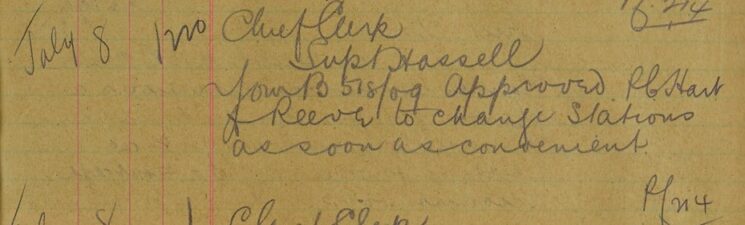 Pf. 214
July 8 1220 Chief Clerk
Supt Hassell
Your B 518/09 Approved P.C. Hart
& Reeve to change Stations
as soon as convenient
Pf 214
8 1 Chief Clerk